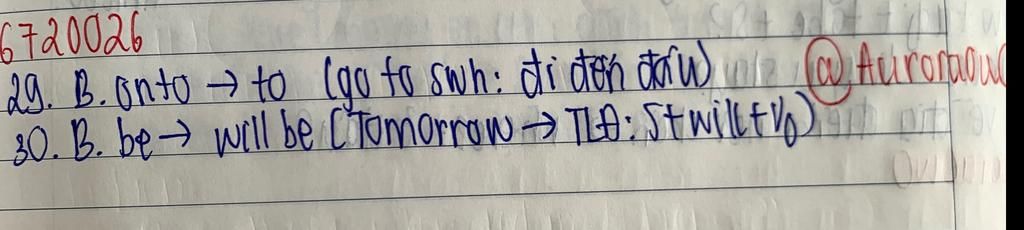 6720026
29. B. onto → to (go to swh: đi đến đâu) @Auroraou
30. B. be → will be (Tomorrow → TLĐ: S+will+V₀)